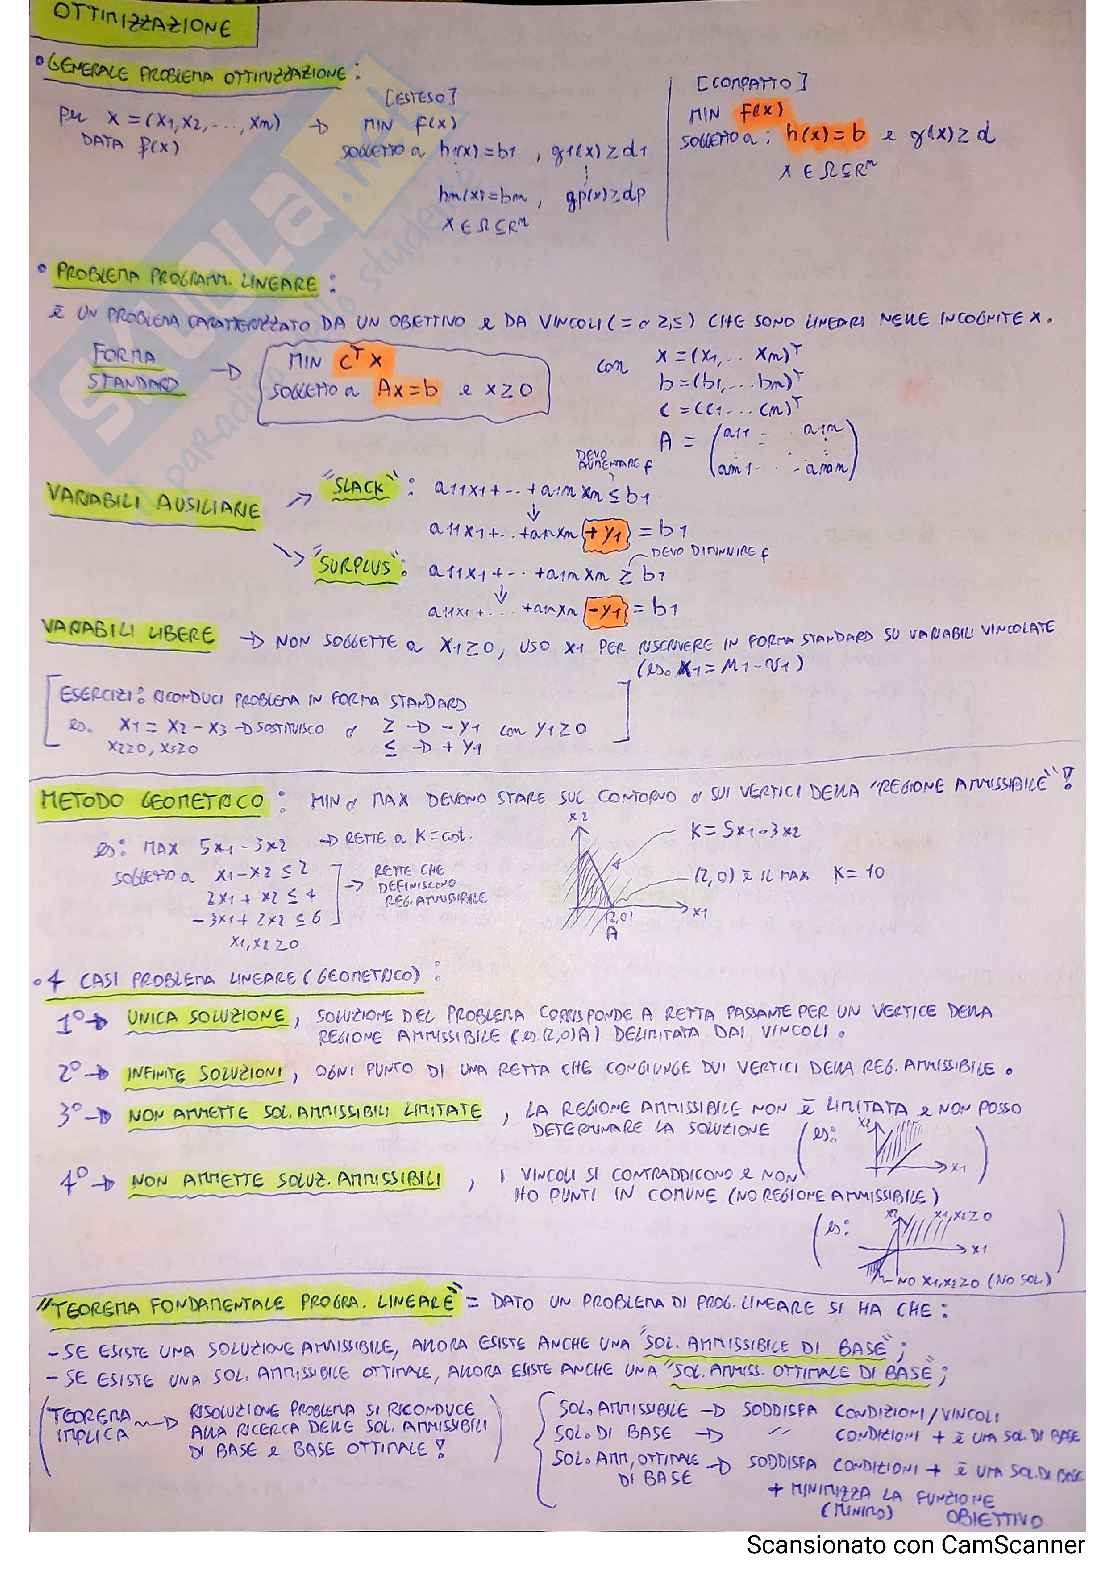 OTTIMIZZAZIONE
• GENERALE PROBLEMA OTTIMIZZAZIONE:
per x = (x1, x2, ..., xm) →
DATA f(x)
[ESTESO]
MIN f(x)
SOGGETTO a h1(x)=b1 , g1(x)≥d1
hm(x)=bm , gp(x)≥dp
x ∈ Ω ⊆ Rⁿ
[COMPATTO]
MIN f(x)
SOGGETTO a: h(x)=b e g(x)≥d
x ∈ Ω ⊆ Rⁿ
• PROBLEMA PROGRAMM. LINEARE:
È UN PROBLEMA CARATTERIZZATO DA UN OBIETTIVO e DA VINCOLI (= o ≥,≤) CHE SONO LINEARI NELLE INCOGNITE X.
FORMA STANDARD →
MIN cᵀx
SOGGETTO a Ax=b e x≥0
con x = (x1,... xm)ᵀ
b = (b1,... bm)ᵀ
c = (c1... cm)ᵀ
A = (a11 ... a1m
am1 ... amm)
VARIABILI AUSILIARIE
DEVO AUMENTARE f
"SLACK": a11x1+...+a1mxm ≤ b1
a11x1+...+anxm +y1 = b1
DEVO DIMINUIRE f
"SURPLUS": a11x1+...+a1mxm ≥ b1
a11x1+...+anxm -y1 = b1
VARIABILI LIBERE → NON SOGGETTE a x1≥0, USO x1 PER RISCRIVERE IN FORMA STANDARD SU VARIABILI VINCOLATE
(es. x1 = u1-v1)
[ESERCIZI: RICONDUCI PROBLEMA IN FORMA STANDARD
es. x1 = x2-x3 → SOSTITUISCO o ≥ → -y1 con y1≥0
x2≥0, x3≥0 ≤ → +y1 ]
METODO GEOMETRICO: MIN o MAX DEVONO STARE SUL CONTORNO o SUI VERTICI DELLA "REGIONE AMMISSIBILE"!
es: MAX 5x1-3x2 → RETTE a K=cost.
SOGGETTO a x1-x2 ≤ 2
2x1+x2 ≤ 4
-3x1+2x2 ≤ 6
x1,x2≥0
→ RETTE CHE DEFINISCONO REG. AMMISSIBILE
x2
K=5x1-3x2
(2,0) È IL MAX K=10
x1
(2,0)
A
• 4 CASI PROBLEMA LINEARE (GEOMETRICO):
1° → UNICA SOLUZIONE, SOLUZIONE DEL PROBLEMA CORRISPONDE A RETTA PASSANTE PER UN VERTICE DELLA
REGIONE AMMISSIBILE (es. (2,0)A) DELIMITATA DAI VINCOLI.
2° → INFINITE SOLUZIONI, OGNI PUNTO DI UNA RETTA CHE CONGIUNGE DUE VERTICI DELLA REG. AMMISSIBILE.
3° → NON AMMETTE SOL. AMMISSIBILI LIMITATE, LA REGIONE AMMISSIBILE NON È LIMITATA e NON POSSO
DETERMINARE LA SOLUZIONE (es: x2 x1)
4° → NON AMMETTE SOLUZ. AMMISSIBILI, I VINCOLI SI CONTRADDICONO e NON
HO PUNTI IN COMUNE (NO REGIONE AMMISSIBILE)
(es: x2 x1,x2≥0
x1
NO x1,x2≥0 (NO SOL))
"TEOREMA FONDAMENTALE PROGRA. LINEARE" = DATO UN PROBLEMA DI PROG. LINEARE SI HA CHE:
- SE ESISTE UNA SOLUZIONE AMMISSIBILE, ALLORA ESISTE ANCHE UNA "SOL. AMMISSIBILE DI BASE";
- SE ESISTE UNA SOL. AMMISSIBILE OTTIMALE, ALLORA ESISTE ANCHE UNA "SOL. AMMISS. OTTIMALE DI BASE";
(TEOREMA IMPLICA → RISOLUZIONE PROBLEMA SI RICONDUCE
ALLA RICERCA DELLE SOL. AMMISSIBILI
DI BASE e BASE OTTIMALE!)
SOL. AMMISSIBILE → SODDISFA CONDIZIONI/VINCOLI
SOL. DI BASE → " CONDIZIONI + È UNA SOL. DI BASE
SOL. AMM. OTTIMALE DI BASE → SODDISFA CONDIZIONI + È UNA SOL. DI BASE
+ MINIMIZZA LA FUNZIONE OBIETTIVO
(MINIMO)
Scansionato con CamScanner
SKUOLA.net
il paradiso dello studente